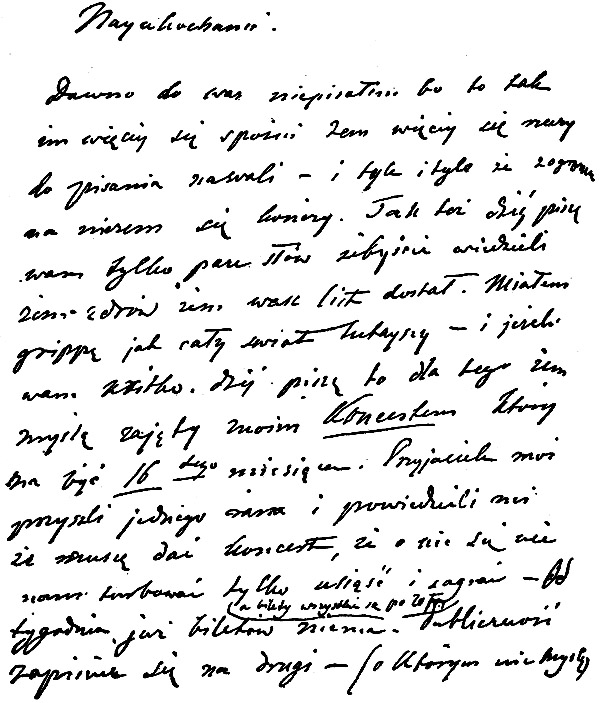 Najukochańsi.
Dawno do was niepisałem bo to tak
im więcéj się spóźni tem więcéj się rzeczy
do pisania nazwali – i tyle i tyle że
na niczem się kończy. Tak też dziś piszę
wam tylko parę słów żebyście wiedzieli
żem zdrów żem wasz list dostał. Miałem
grippę jak cały świat tutejszy – i jeżeli
wam krótko dziś piszę to dla tego żem
myślą zajęty moim Koncertem który
ma być 16 tego miesiąca. Przyjaciele moi
przyszli jednego rana i powiedzieli mi
że muszę dać koncert, że o nic się nie
mam turbować tylko usiąść i zagrać – Od
(a bilety wszystkie są po 20 fr)
tygodnia już biletów niema. Publiczność
zapisuje się na drugi – (o którym nie myślę)